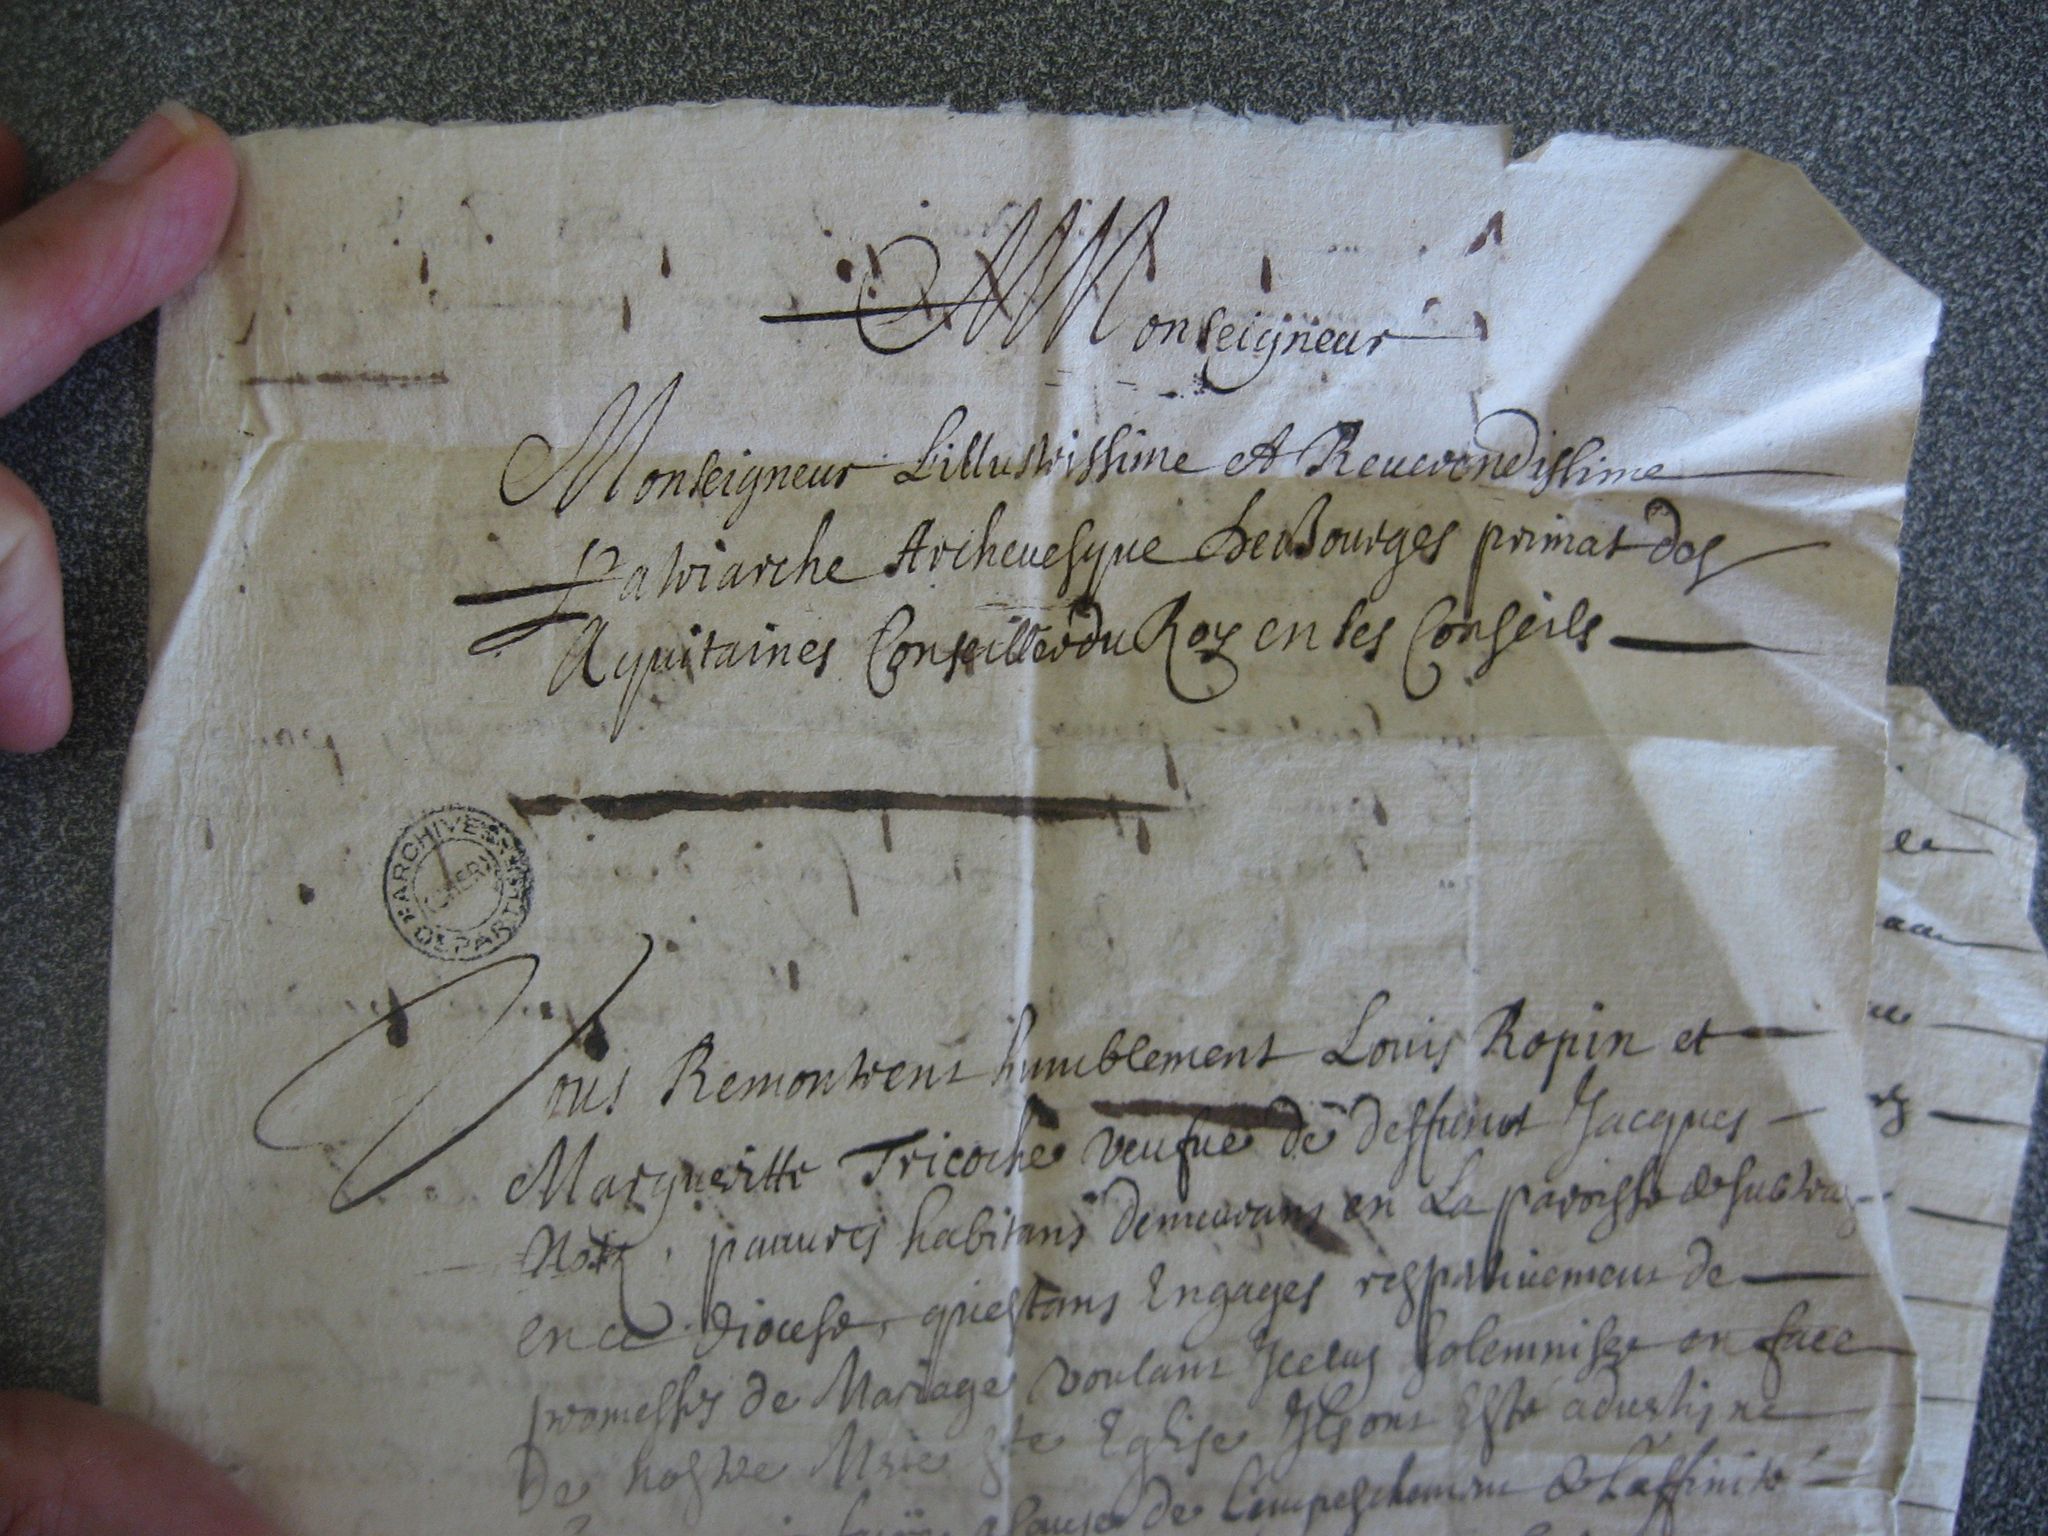 Monseigneur
Monseigneur Lillustrissime et Reuerendissime
Patriarche Archeuesque de Bourges primat des
Aquitaines Conseiller du Roy en ses Conseils
ARCHIVES DEPARTLES
CHER
Vous Remontrent humblement Louis Ropin et
Margueritte Tricoche veufue de deffunct Jacques
pauures habitans demeurans en La paroisse de
en ce diocese, questans Engages respectiuement de
promesses de Mariage voulant Jcelus solemniser en face
De nostre Mere Ste Eglise Jls ont Esté aduertis
a cause de Lempeschement de Laffinité